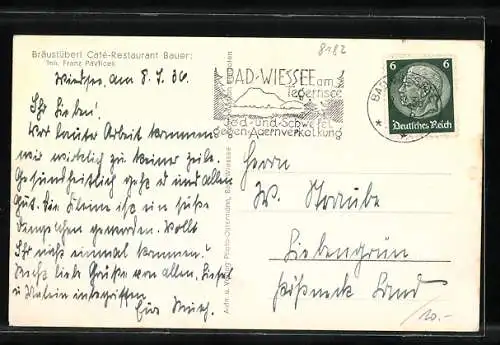 Bräustüberl Café-Restaurant Bauer:
Inh. Franz Pavlicek
8182
Wiessee, am 8.7.36.
Ihr Lieben!
Vor lauter Arbeit kommen
wir wirklich zu keiner Zeile.
Gesundheitlich geht es uns allen
Gut. Die Kleine ist ein süßes
geworden. Wollt
Ihr nicht einmal kommen?
Recht liebe Grüße von allen,
und inbegriffen
Eure
BAD-WIESSEE am
Tegernsee
Jod- und Schwefel
gegen Adernverkalkung
6 6
Deutsches Reich
BAD
Herrn
W. Straube
Liebengrün
Pößneck Land
10.-
Aufn. u. Verlag Photo-Ostermann, Bad-Wiessee